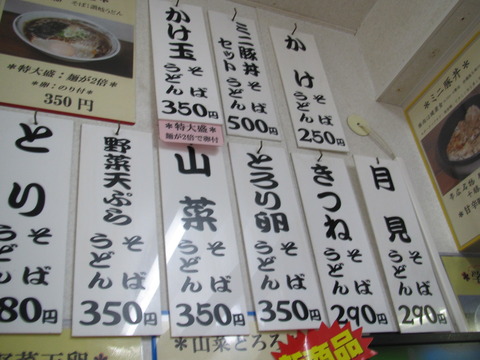 *特大盛:麺が2倍*
*卵:のり付*
350円
かけ玉
そば
うどん
350円
*特大盛*
麺が2倍で卵付
ミニ豚丼
セット
そば
うどん
500円
かけ
そば
うどん
250円
とり
そば
うどん
80円
野菜天ぷら
そば
うどん
350円
山菜
そば
うどん
350円
とろり卵
そば
うどん
350円
きつね
そば
うどん
290円
月見
そば
うどん
290円
*ミニ豚丼*
*山菜とろろ
新商品